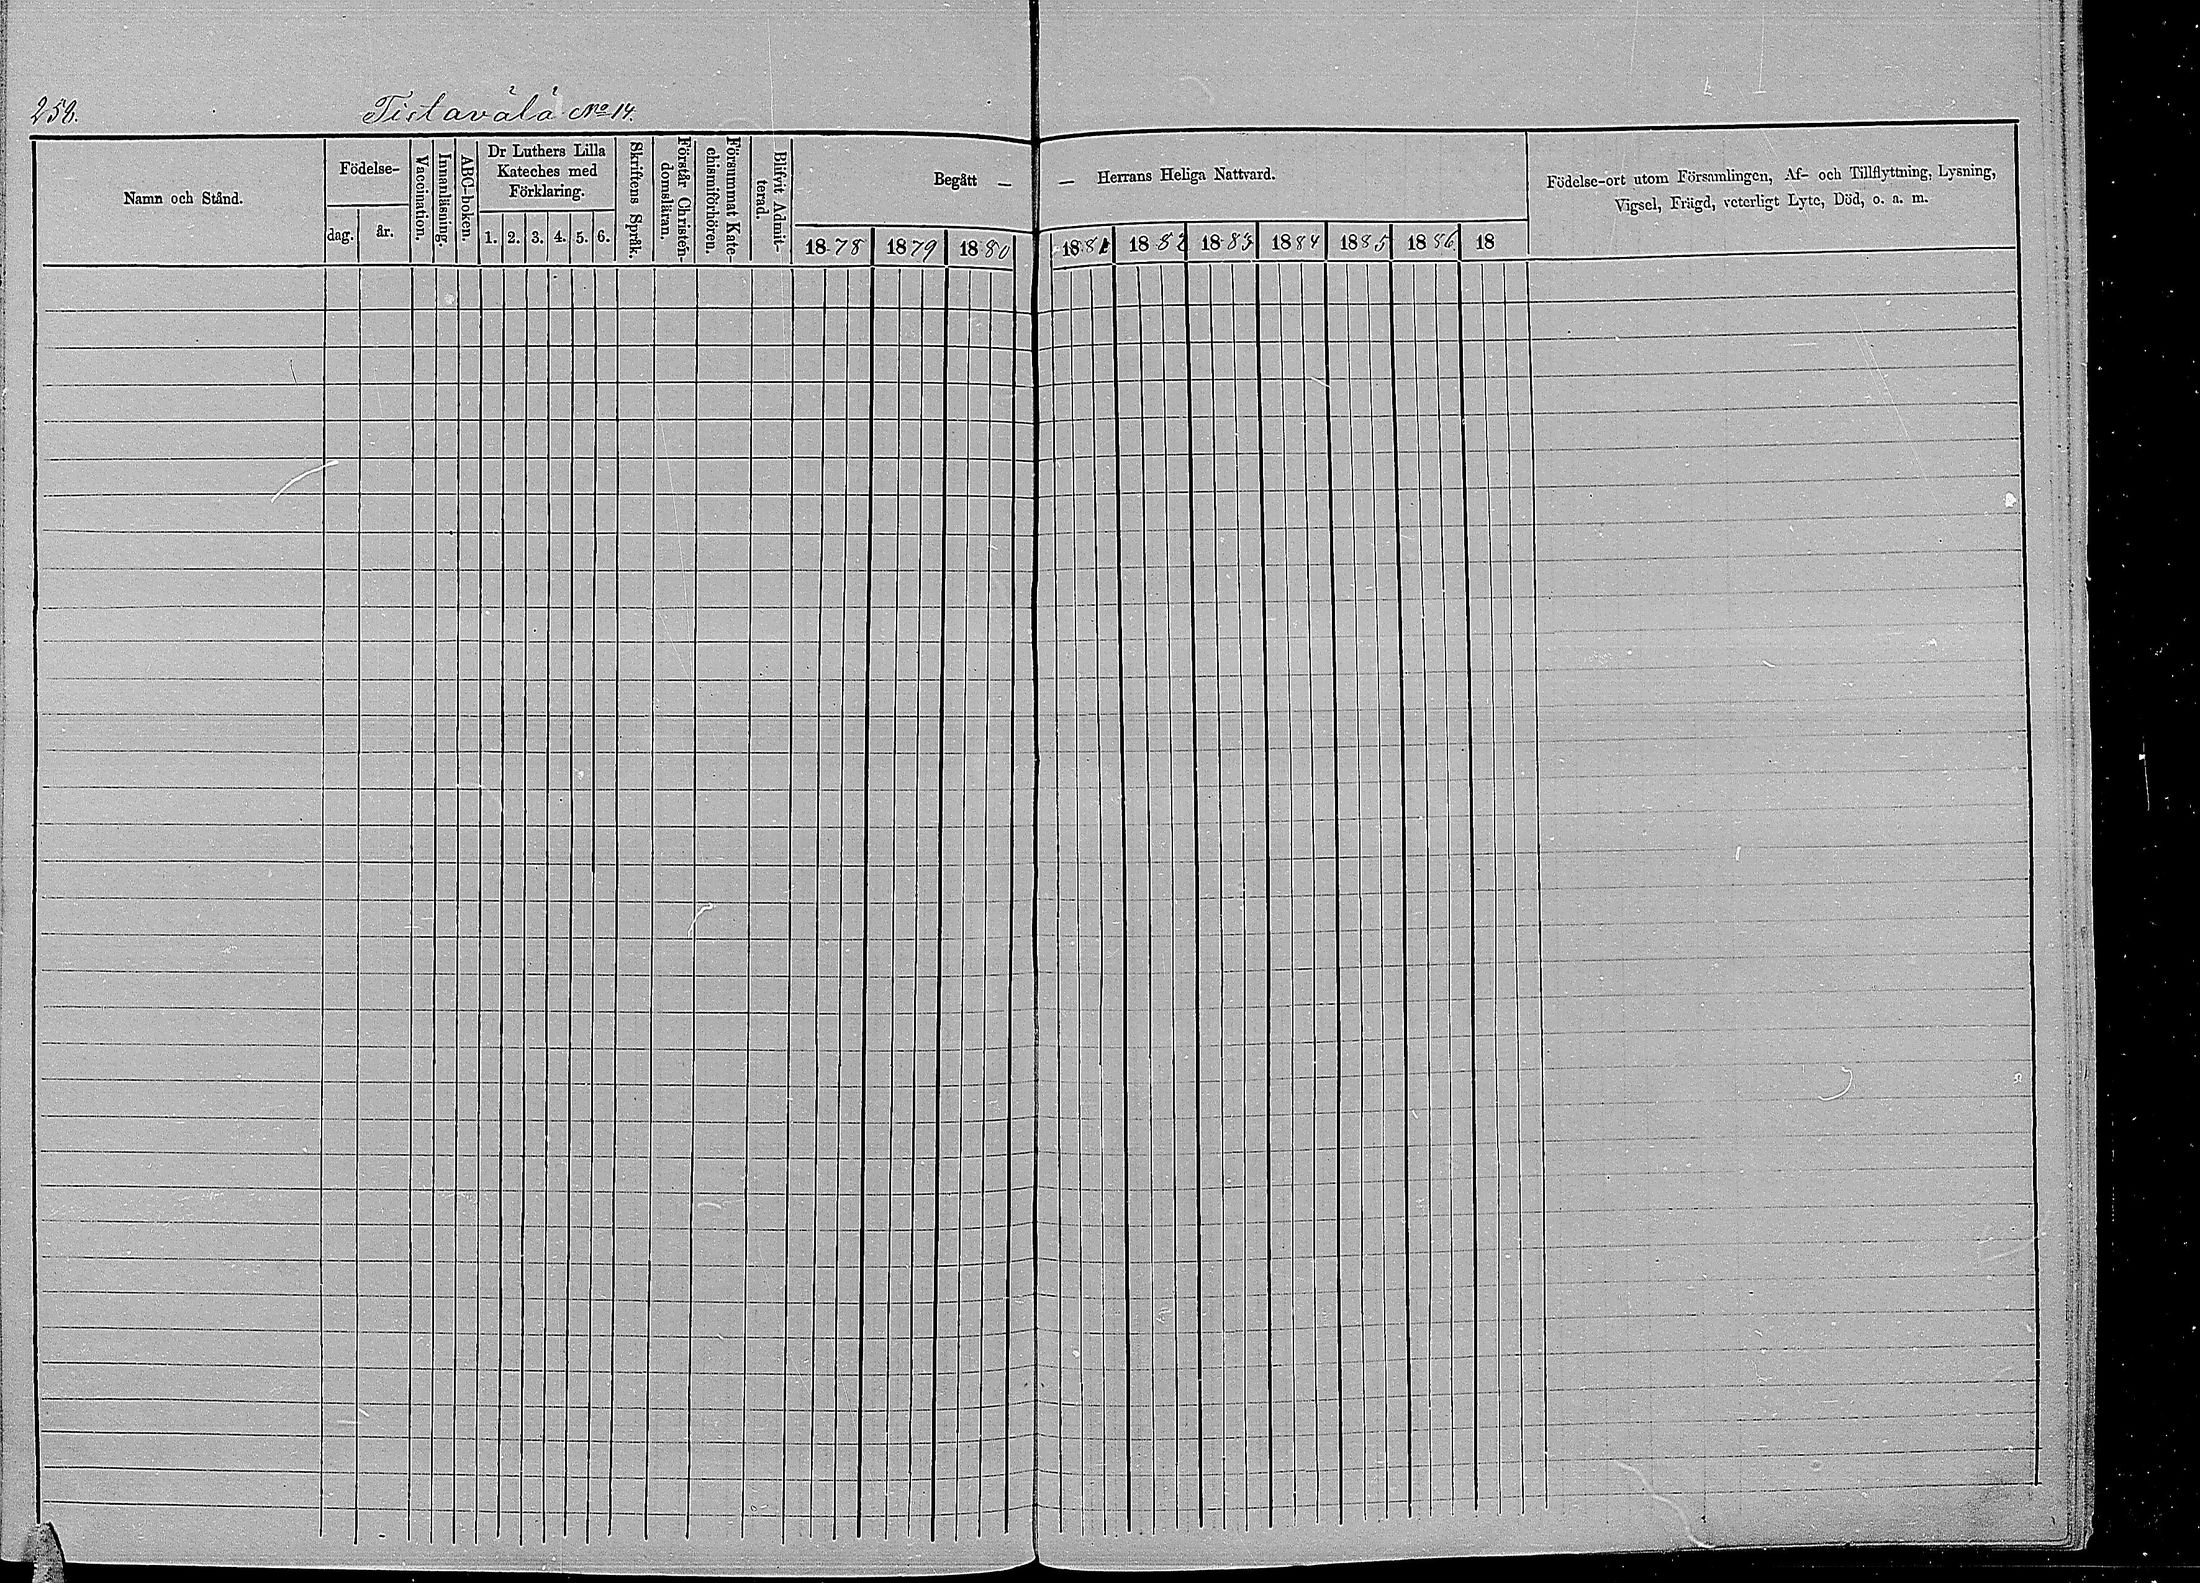 258. Tistavälä No 14.
Namn och Stånd.
Födelse-
dag. år.
Vaccination.
Innanläsning.
ABC-boken.
Dr Luthers Lilla
Kateches med
Förklaring.
1. 2. 3. 4. 5. 6.
Skriftens Språk.
Förstår Christen-
domsläran.
Försummat Kate-
chismiförhören.
Blifvit Admit-
terad.
Begått — — Herrans Heliga Nattvard.
1878 1879 1880 1881 1882 1883 1884 1885 1886 18
Födelse-ort utom Församlingen, Af- och Tillflyttning, Lysning,
Vigsel, Frägd, veterligt Lyte, Död, o. a. m.